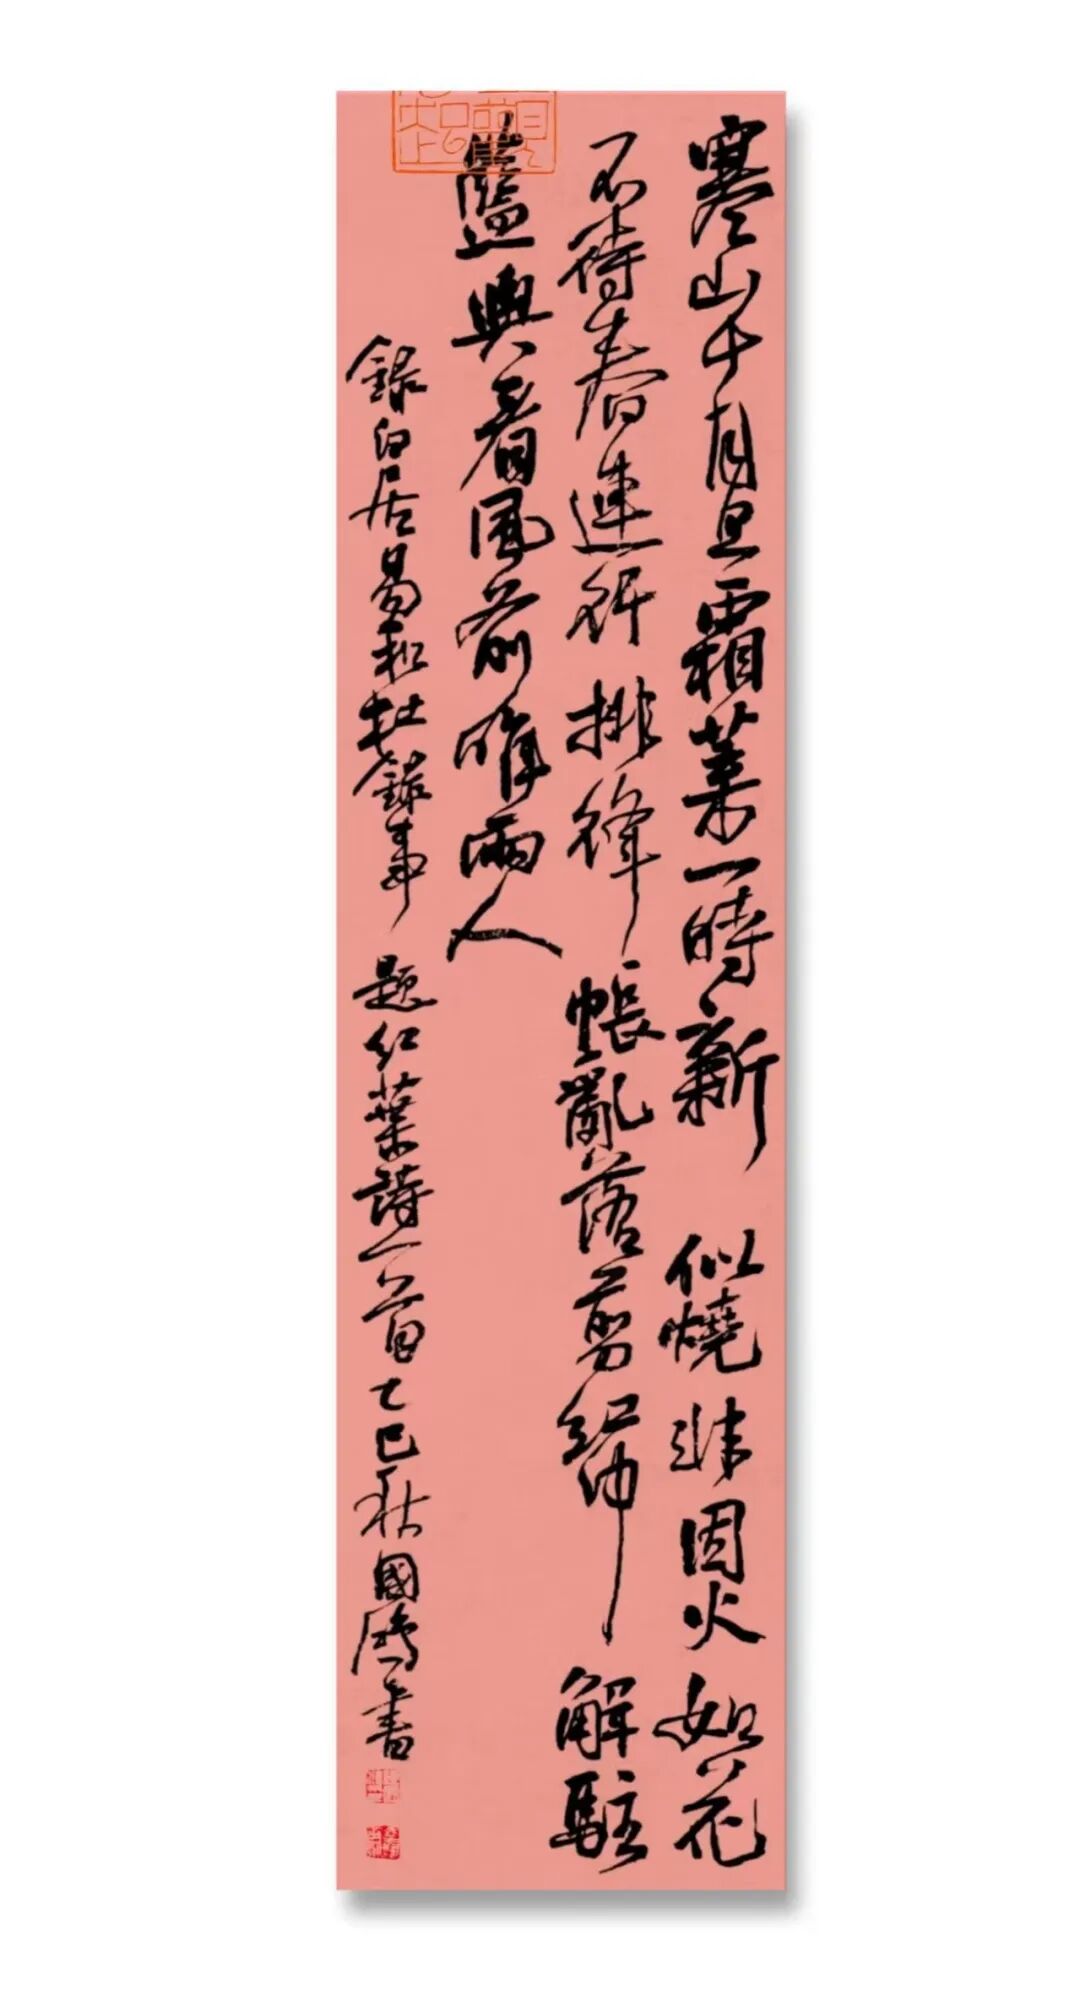 寒山十月旦霜葉一時新似燒非因火如花
不待春連行排絳帳亂落剪紅巾解駐
籃輿看風前唯兩人
錄白居易和杜錄事題紅葉詩一首乙巳秋國書